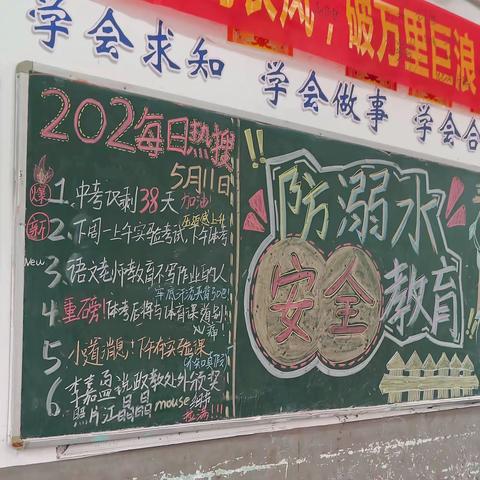 长风,破万里巨浪
学会求知
学会做事
学会合
202每日热搜
5月11日
爆 1. 中考仅剩38天 加油
新 2. 下周一上午实验考试,下午体考
New 3. 语文老师教育不写作业的人
4. 重磅!体考后将与体育课道别!
5. 小道消息!下午有实验课
6 李嘉孟说政教处外颁奖
照片江晶晶mouse
防溺水
安全教育